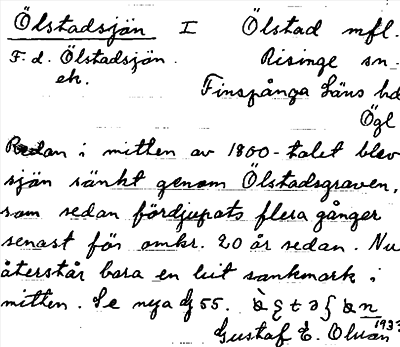 Ölstadsjön I Ölstad mfl.
F. d. Ölstadsjön. Risinge sn.
ek. Finspånga Läns hd
Ögl
Redan i mitten av 1800-talet blev
sjön sänkt genom Ölstadsgraven,
som sedan fördjupats flera gånger
senast för omkr. 20 år sedan. Nu
återstår bara en liit sankmark i
mitten. Se nya bj 55.
Gustaf E. Olsson 1933